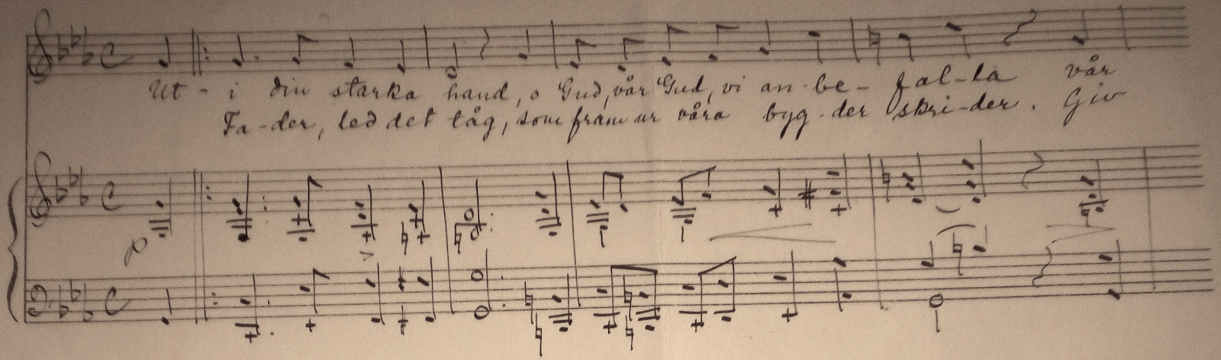 Ut - i din starka hand, o Gud, vår Gud, vi an-be-fal-la vår
Fa-der, led det tåg, som fram ur våra byg-der skri-der. Giv
p